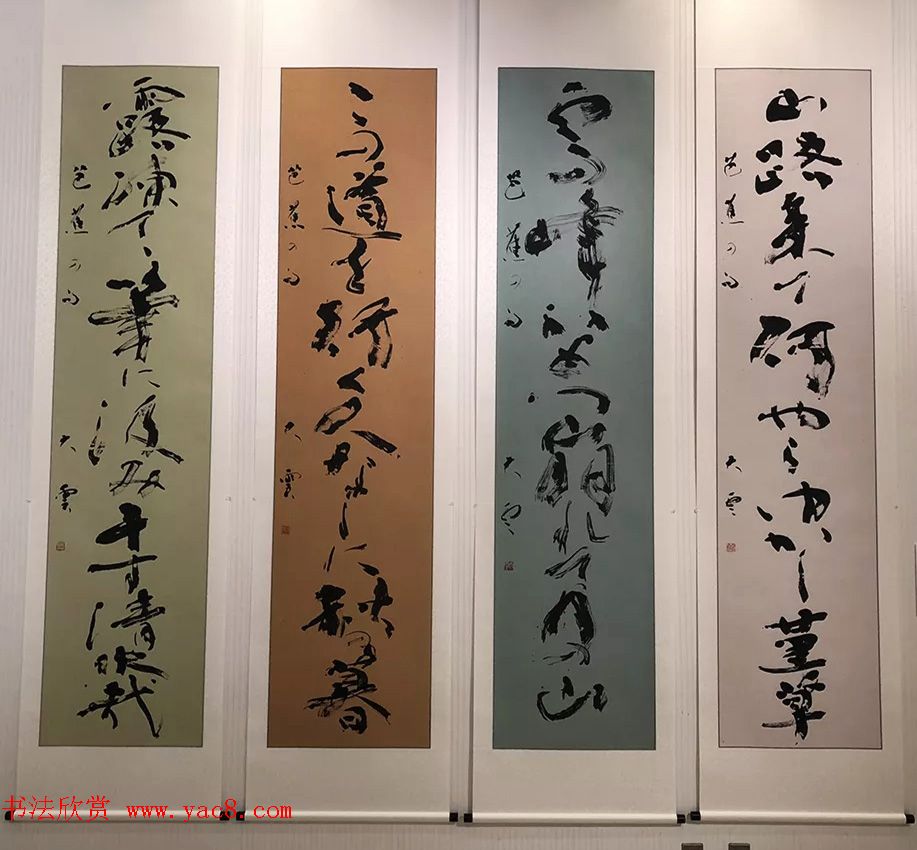 山路来て何やらゆかし菫草
芭蕉の句
大雲
雲の峰いくつ崩れて月の山
芭蕉の句
大雲
この道を行く人なしに秋の暮
芭蕉の句
大雲
露凍てゝ筆に汲み干す清水哉
芭蕉の句
大雲
书法欣赏 www.yac8.com